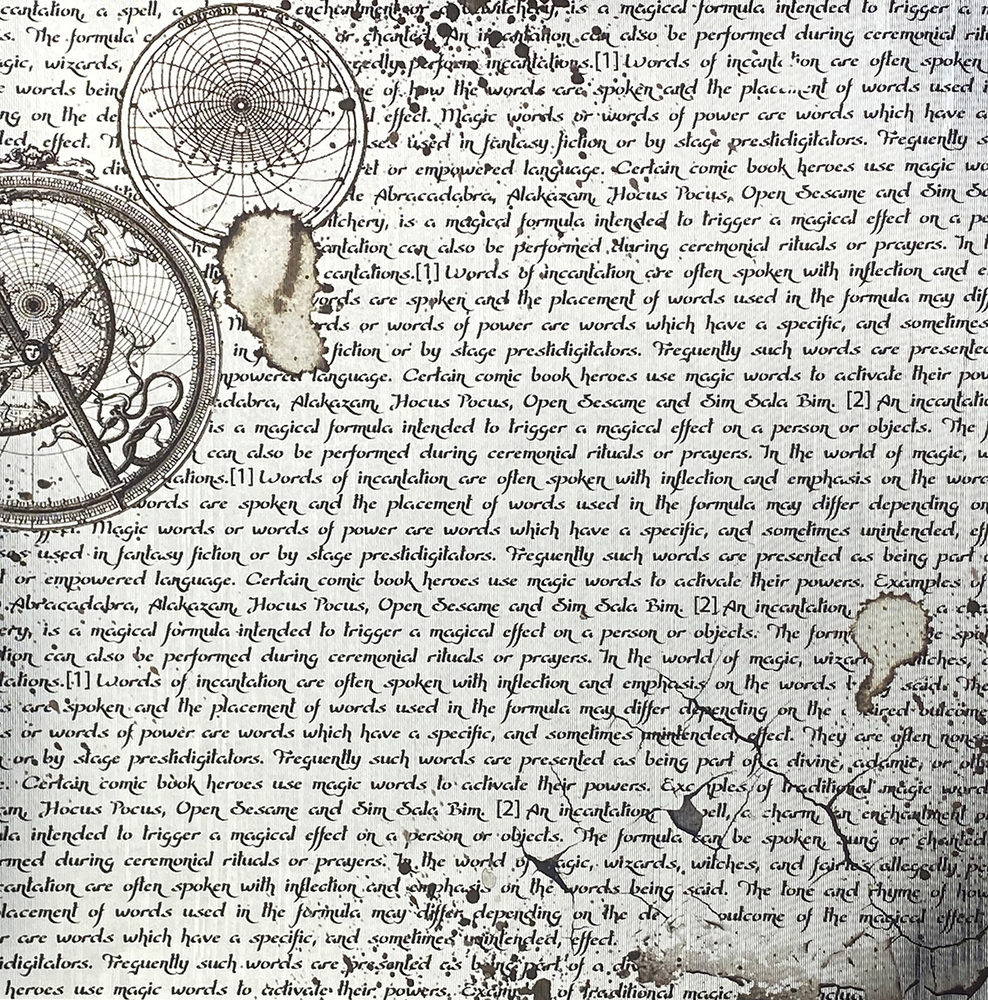 cantation, a spell, a enchantment or a is a magical formula intended to trigger a
s. The formula or chanted. An incantation can also be performed during ceremonial
wizards, perform incantations.[1] Words of are often spoken
words of how the words are spoken and the of words used
on the effect. Magic words or words of power are words which have a
effect. used in fantasy fiction or by stage prestidigitators. Frequently
or empowered language. Certain comic book heroes use magic
OXENFORDIN LAT.
Abracadabra, Alakazam, Hocus Pocus, Open Sesame and Sim
is a magical formula intended to trigger a magical effect on a
can also be performed during ceremonial rituals or prayers. In
[1] Words of incantation are often spoken with inflection and
words are spoken and the placement of words used in the formula may
or words of power are words which have a specific, and sometimes
in fiction or by stage prestidigitators. Frequently such words are presented
language. Certain comic book heroes use magic words to activate their
Alakazam, Hocus Pocus, Open Sesame and Sim Sala Bim. [2] An
is a magical formula intended to trigger a magical effect on a person or objects. The
can also be performed during ceremonial rituals or prayers. In the world of magic,
[1] Words of incantation are often spoken with inflection and emphasis on the
words are spoken and the placement of words used in the formula may differ depending on
Magic words or words of power are words which have a specific, and sometimes unintended,
used in fantasy fiction or by stage prestidigitators. Frequently such words are presented as being part
or empowered language. Certain comic book heroes use magic words to activate their powers. Examples of
Abracadabra, Alakazam, Hocus Pocus, Open Sesame and Sim Sala Bim. [2] An incantation, a
is a magical formula intended to trigger a magical effect on a person or objects. The
can also be performed during ceremonial rituals or prayers. In the world of magic,
[1] Words of incantation are often spoken with inflection and emphasis on the words said. The
are spoken and the placement of words used in the formula may differ depending on the outcome
or words of power are words which have a specific, and sometimes unintended, effect. They are often
or by stage prestidigitators. Frequently such words are presented as being part of a divine, adamic, or
Certain comic book heroes use magic words to activate their powers. Examples of traditional magic
Hocus Pocus, Open Sesame and Sim Sala Bim. [2] An incantation, a charm, an enchantment
intended to trigger a magical effect on a person or objects. The formula can be spoken, sung or chanted
during ceremonial rituals or prayers. In the world of magic, wizards, witches, and fairies allegedly
are often spoken with inflection and emphasis on the words being said. The tone and rhyme of how
of words used in the formula may differ depending on the outcome of the magical effect.
are words which have a specific, and sometimes unintended, effect.
Frequently such words are presented as being part of a
heroes use magic words to activate their powers. of traditional magic